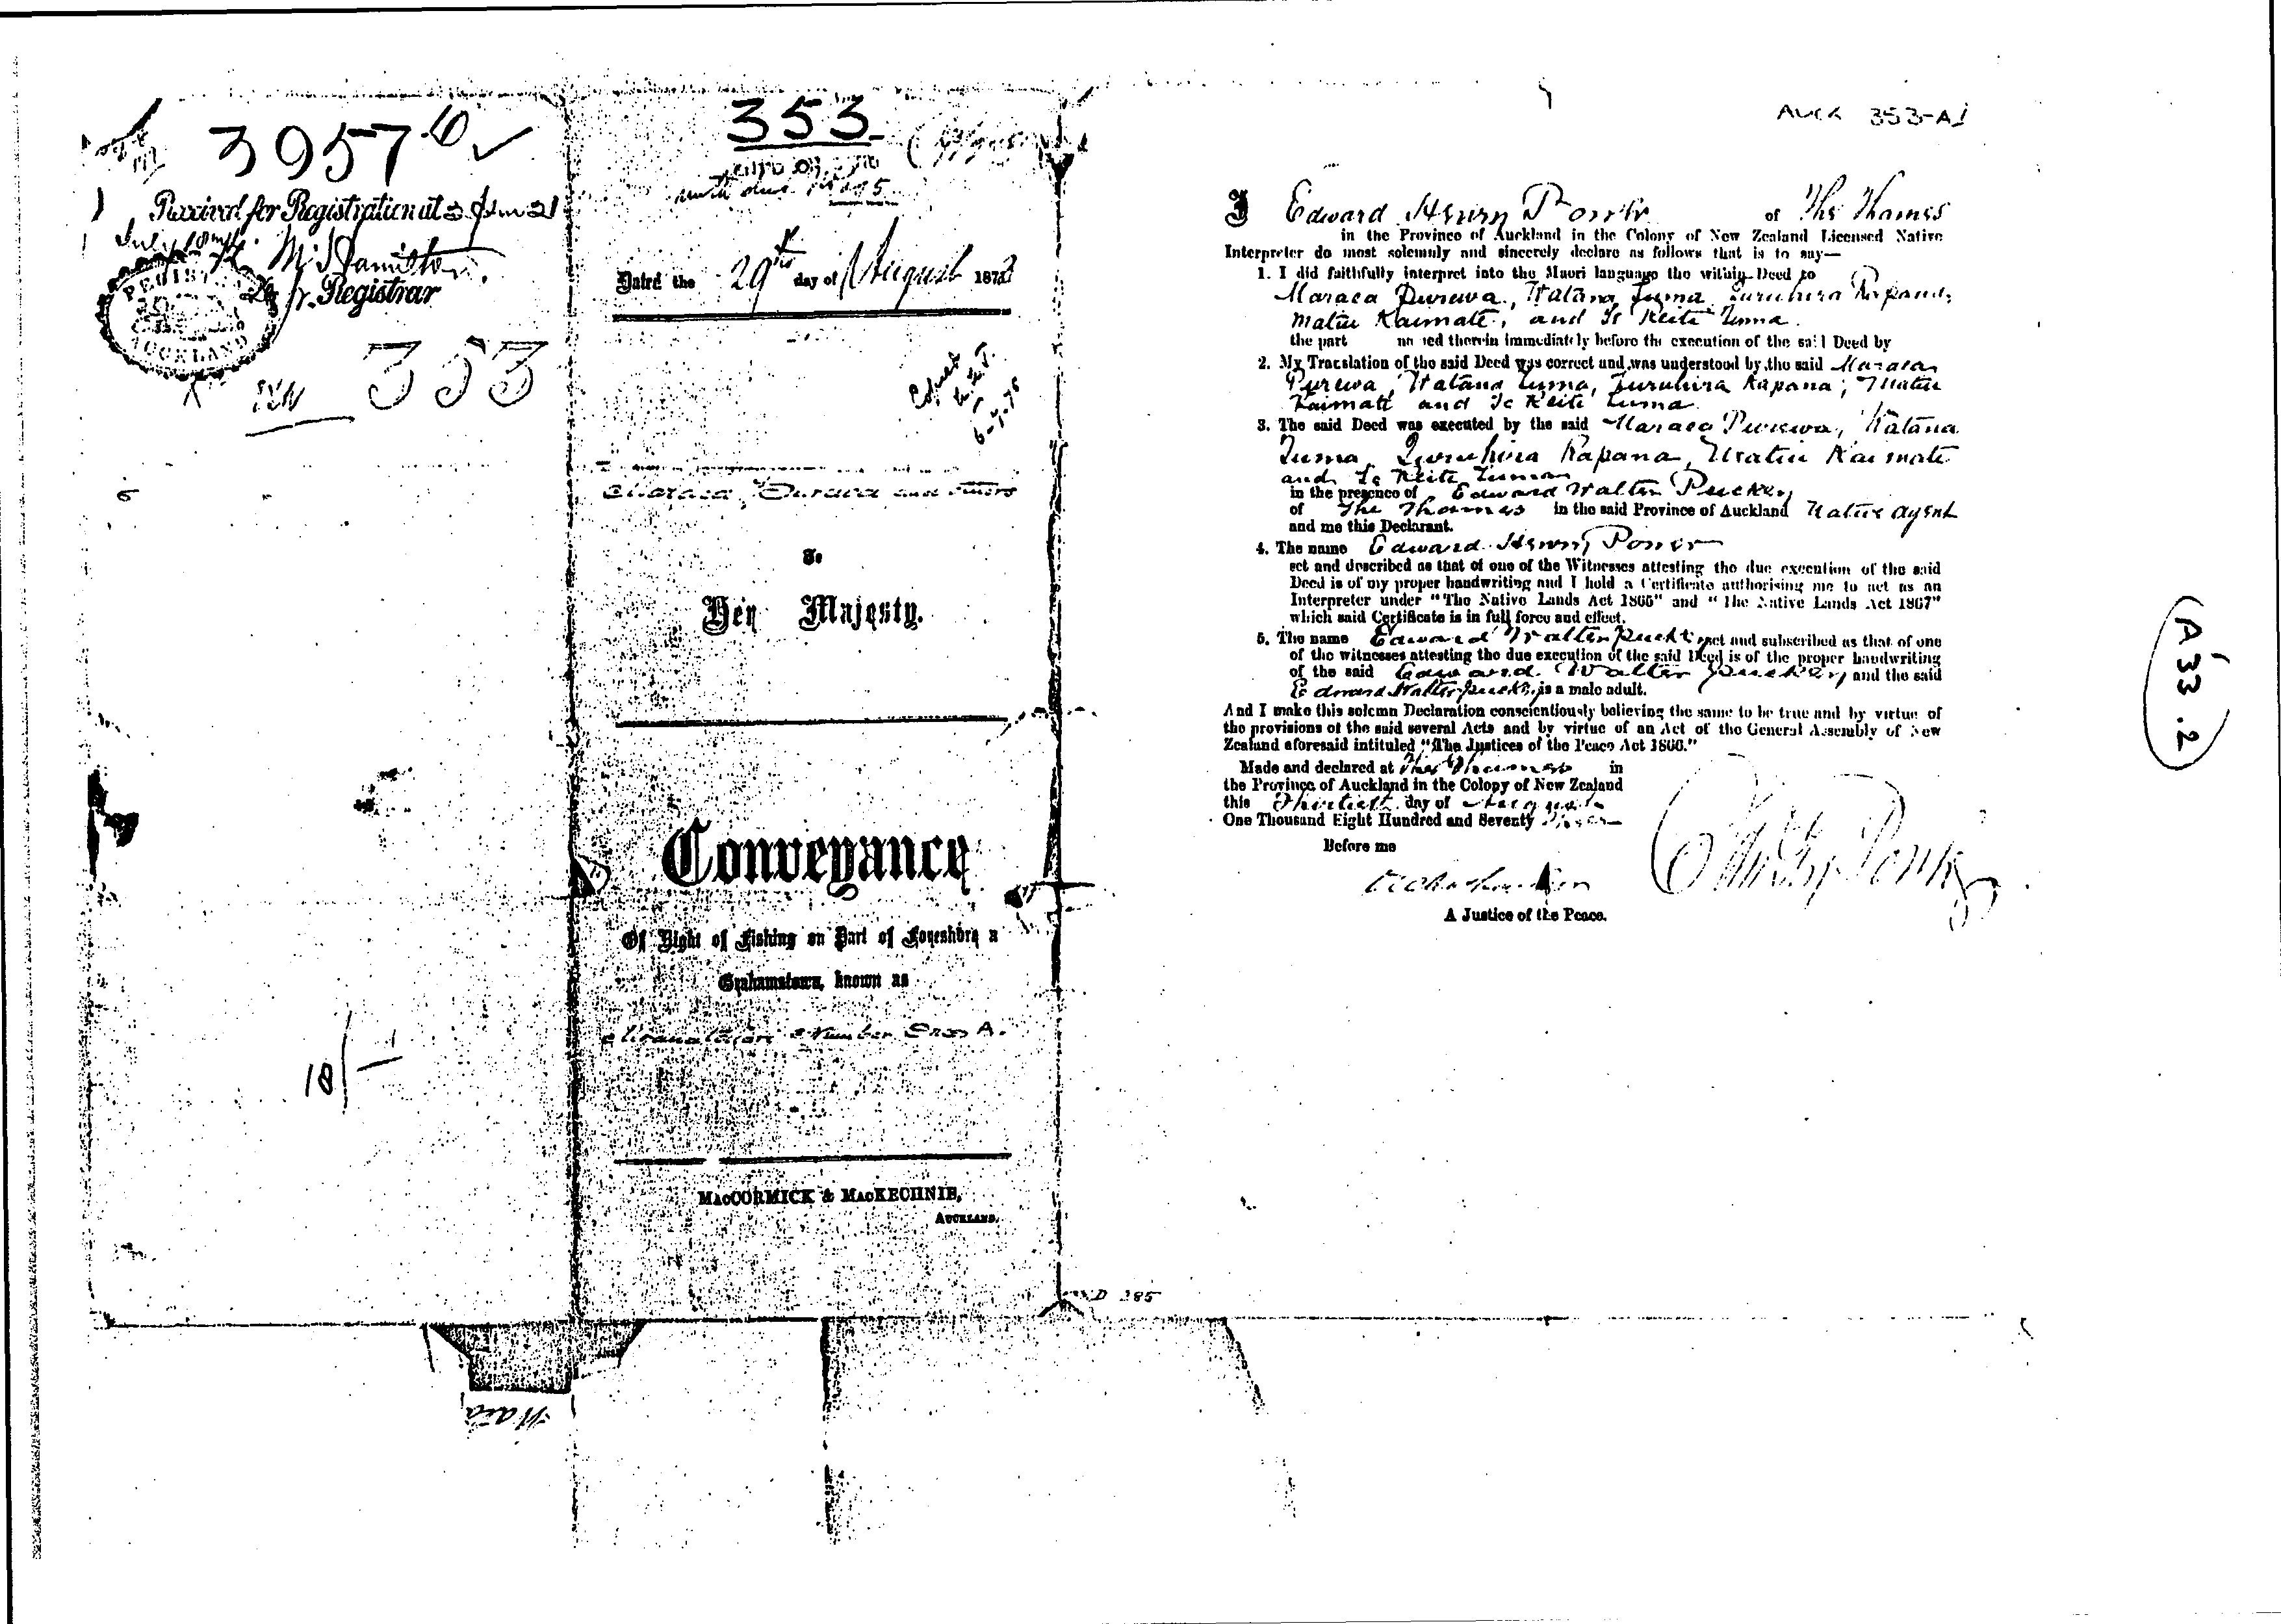 3957
Received for Registration at
July
Hamilton
Registrar
REGIST
AUCKLAND
353
353
Dated the 29th day of August 187
and others
To
Her Majesty.
Conveyance
Of Right of Fishing on Part of Foreshore a
Grahamstown, known as
Number One A.
MacCORMICK & MacKECHNIE,
AUCKLAND.
10/-
385
AUCK 353-A1
I Edward Henry Power of The Thames
in the Province of Auckland in the Colony of New Zealand Licensed Native
Interpreter do most solemnly and sincerely declare as follows that is to say—
1. I did faithfully interpret into the Maori language the within Deed to
Maraea Purewa, Watana Tuma, Turuhira Kapana,
Matiu Kaimate, and Te Reite Tuma.
the part named therein immediately before the execution of the said Deed by
2. My Translation of the said Deed was correct and was understood by the said Maraea
Purewa, Watana Tuma, Turuhira Kapana, Matiu
Kaimate and Te Reite Tuma.
3. The said Deed was executed by the said Maraea Purewa, Watana
Tuma, Turuhira Kapana, Matiu Kaimate
and Te Reite Tuma
in the presence of Edward Walter Puckey
of The Thames in the said Province of Auckland Native Agent
and me this Declarant.
4. The name Edward Henry Power
set and described as that of one of the Witnesses attesting the due execution of the said
Deed is of my proper handwriting and I hold a Certificate authorising me to act as an
Interpreter under "The Native Lands Act 1865" and "The Native Lands Act 1867"
which said Certificate is in full force and effect.
5. The name Edward Walter Puckey set and subscribed as that of one
of the witnesses attesting the due execution of the said Deed is of the proper handwriting
of the said Edward Walter Puckey and the said
Edward Walter Puckey is a male adult.
And I make this solemn Declaration conscientiously believing the same to be true and by virtue of
the provisions of the said several Acts and by virtue of an Act of the General Assembly of New
Zealand aforesaid intituled "The Justices of the Peace Act 1866."
Made and declared at The Thames in
the Province of Auckland in the Colony of New Zealand
this Thirtieth day of August
One Thousand Eight Hundred and Seventy
Before me
A Justice of the Peace.
A33.2